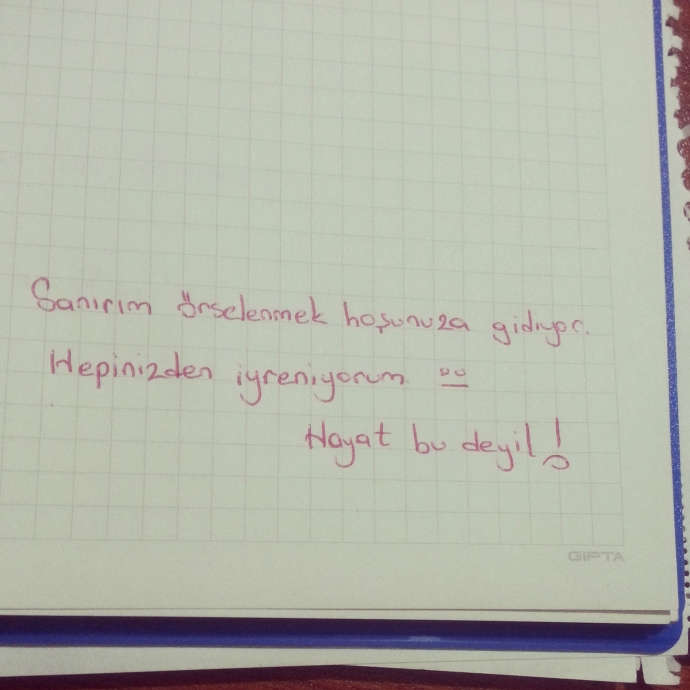 Sanırım örselenmek hoşunuza gidiyor.
Hepinizden iyreniyorum.
Hayat bu deyil!
GIPTA